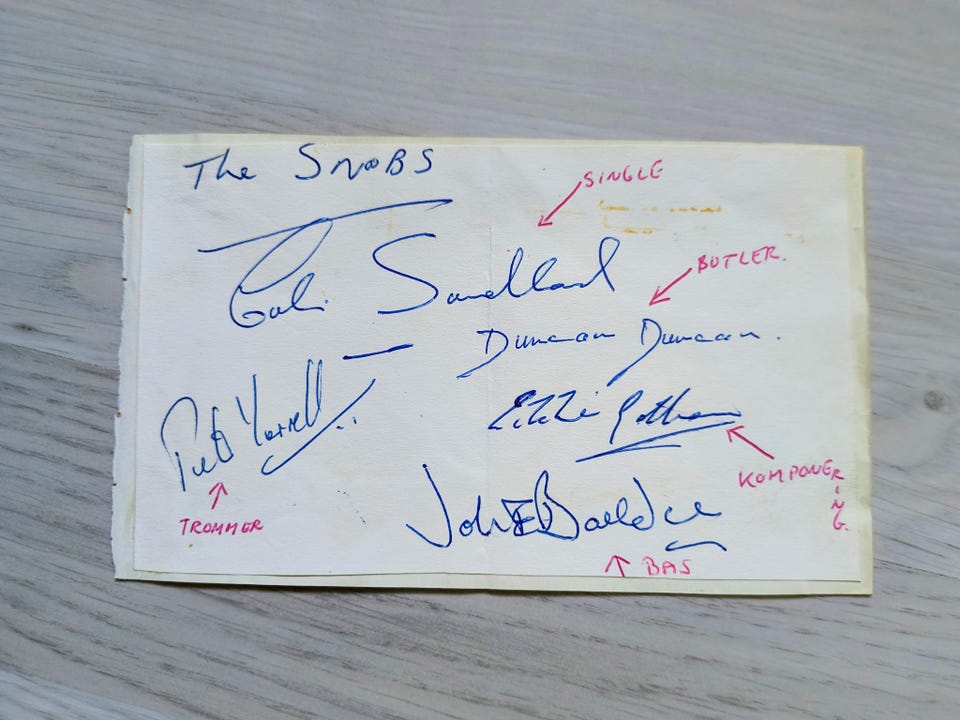 The SNOBS
SINGLE
Colin Sandland
BUTLER.
Duncan Duncan.
Eddie Gotham
Pete Yarrell
KOMPONERING.
TROMMER
John E Boulden
BAS